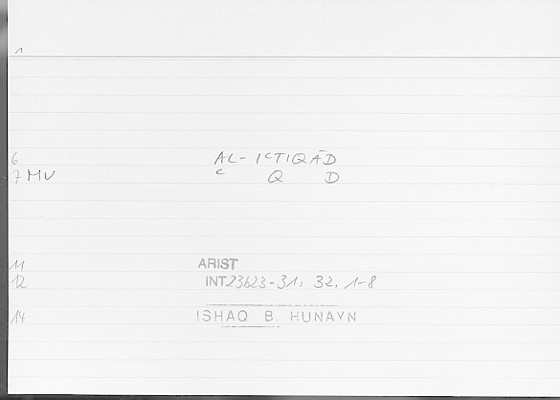 1
6 AL-IᶜTIQĀD
7 MU ᶜ Q D
11 ARIST
12 INT 23b23-31, 32, 1-8
14 ISHAQ B. HUNAYN